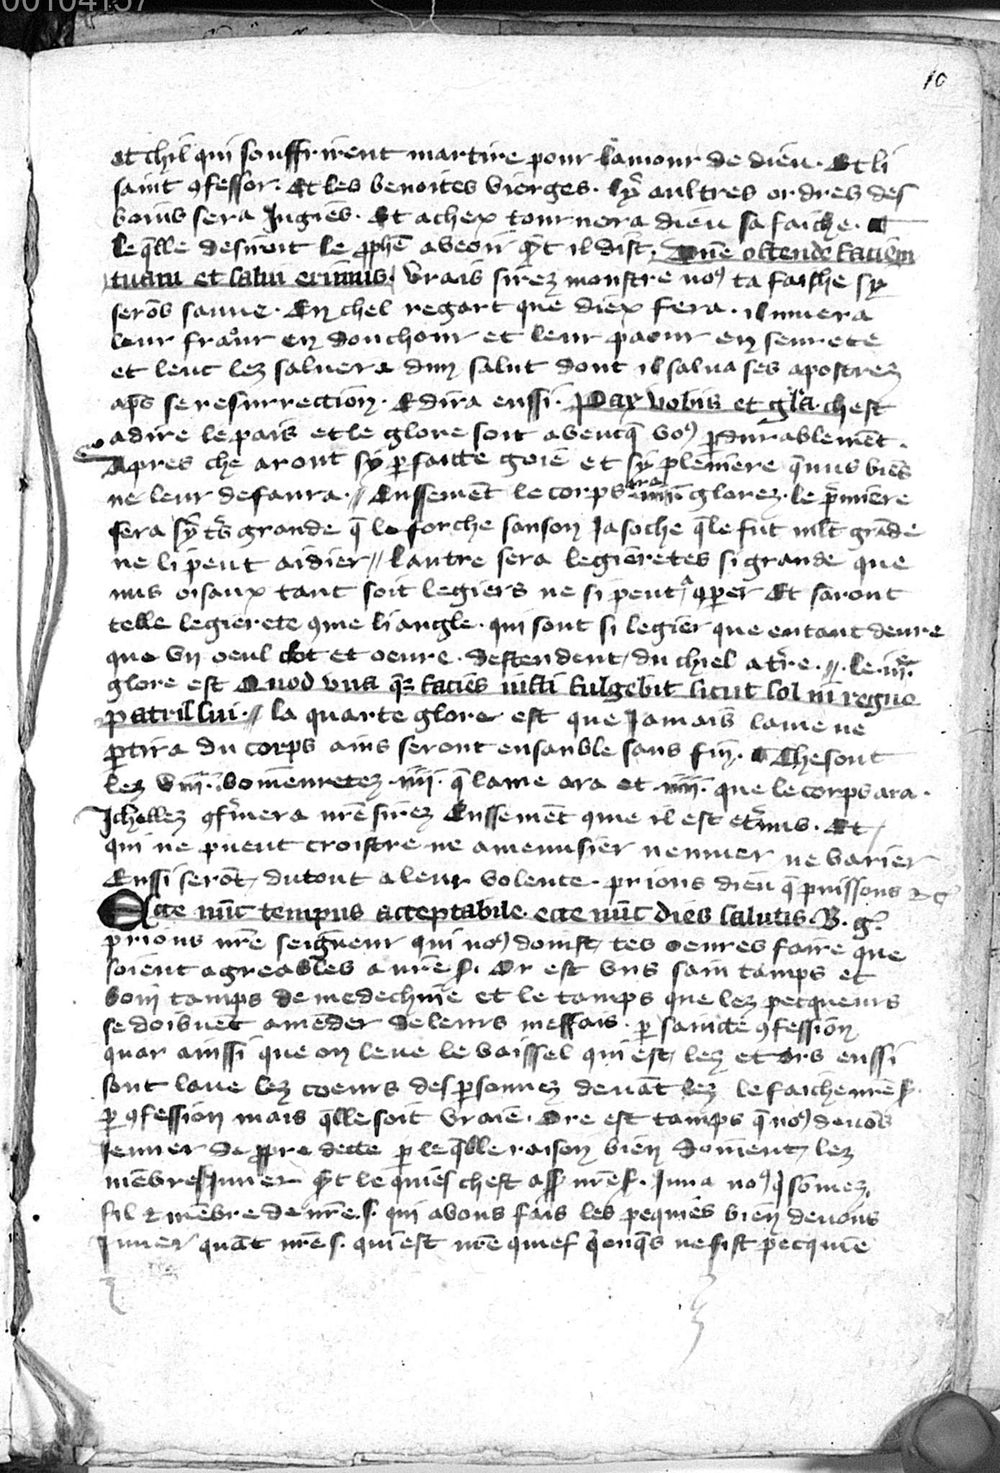 00104137
10
et chil qui souffrirent martire pour lamour de dieu. Et li
saint ꝯfessor. Et les benoites vierges. ly aultres ordres des
boins sera Jugies. Et achex tournera dieu sa faiche.
le qlle desiroit le ꝓphe aveoir qt il dist. Dne ostende faciem
tuam et salui erimus. Vrais sirez monstre noꝰ ta faiche sy
serōs sauue. En chel regart que diex fera. il muera
leur frar en douchour et leur paour en seurete
et leur lez saluera dun salut dont il salua ses apostrez
aps se resurrection. Edira enssi. Pax vobis et gla. chest
adire le pais et le glore soit avencq voꝰ ꝑdurablemēt.
Apres che aront sy ꝑfaicte goie et sy pleniere q nus biēs
ne leur defaura. // Enssemēt le corps ara .iiii. glorez. le pmiere
sera sy ts grande q le forche sanson Ja soche q le fut mlt grāde
ne li peut aidier // lautre sera legieretes si grande que
nus oisaux tant soit legiers ne si peut ꝯper Et saront
telle legierete ꝯme li angle. qui sont si legier que en tant deure
que vn oeul clot et oeure. destendent du chiel a tre. // le .iiie.
glore est Quod vna q facies iusti fulgebit sicut sol in regno
patris sui. // la quarte glore est que Jamais lame ne
ꝑtira du corps ains seront ensanble sans fin. Che sont
lez viii. bomeuretez .iiii. q lame ara et .iiii. que le corps ara.
Ichellez ꝯfmera nre sirez Enssemēt ꝯme il est etnus. Et
qui ne puent croistre ne amenusier ne muer ne varier
Enssi serōt du tout a leur volente. prions dieu q puissons &c
Ecce nūc tempus acceptabile. ecce nūc dies salutis. B. g.
prions nre seigneur qui noꝰ doinst tes oeures faire que
soient agreables a nre s. Or est vns sain tamps et
boin tamps de medechine et le tamps que lez pecqueurs
se doibuēt amēder de leurs meffais. ꝑ saincte ꝯfession
quar ainssi que on leue le vaissel qui est lez et ors enssi
sont laue lez coeurs des ꝑsonnez deuāt lez le faiche nre s.
ꝑ ꝯfession mais qlle soit vraie. Ore est tamps q noꝰ deuōs
Jeuner de ꝓpre dette ꝑ le qlle raison bien doiuent lez
mēbres Juner qt le quies chest ass nre s. Juna noꝰ q sōmez
fil & mēbre de nre s. qui avons fais les pequies bien deuons
Juner quāt nre s. qui est nre quief qonqs ne fist pecquie